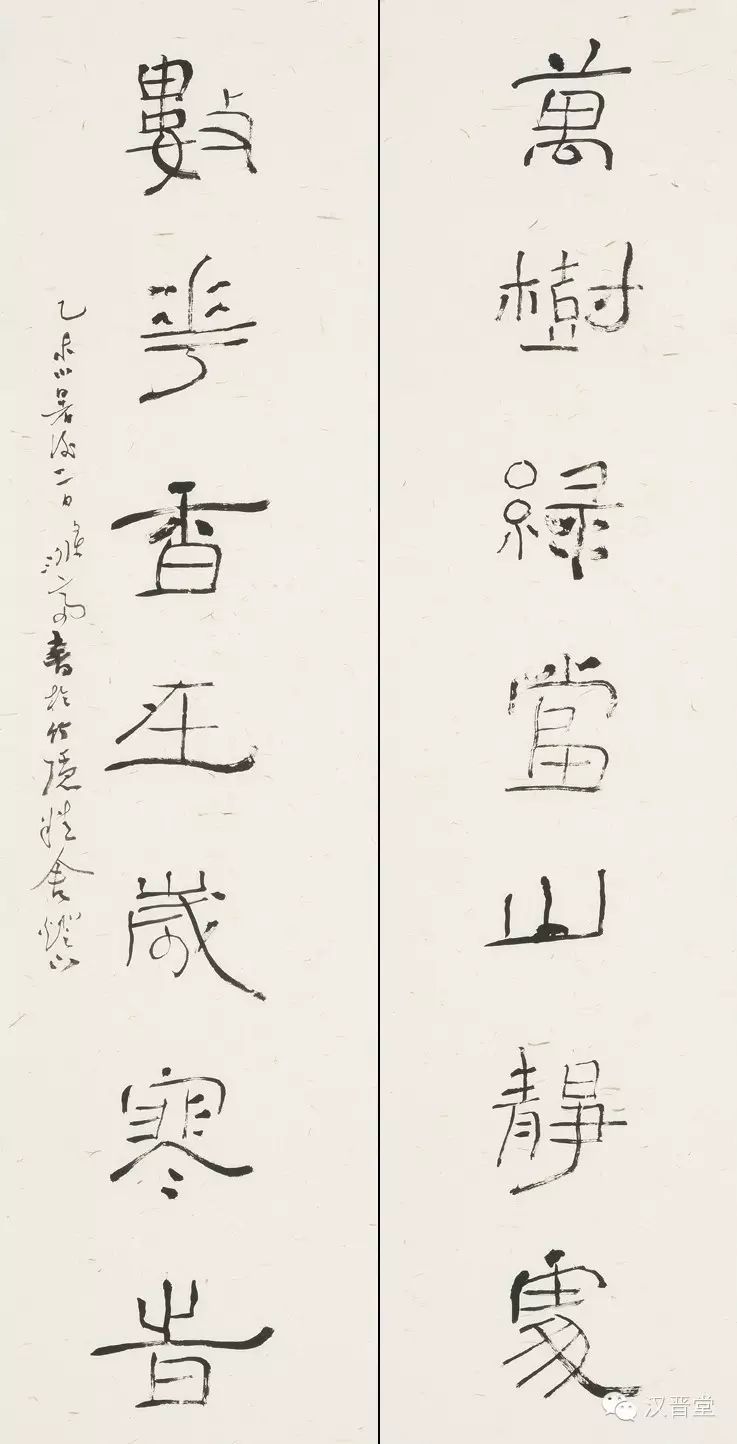 萬樹綠當山靜處
數華香在歲寒旹
乙未小暑後二日書於竹隱精舍燈下
汉晋堂